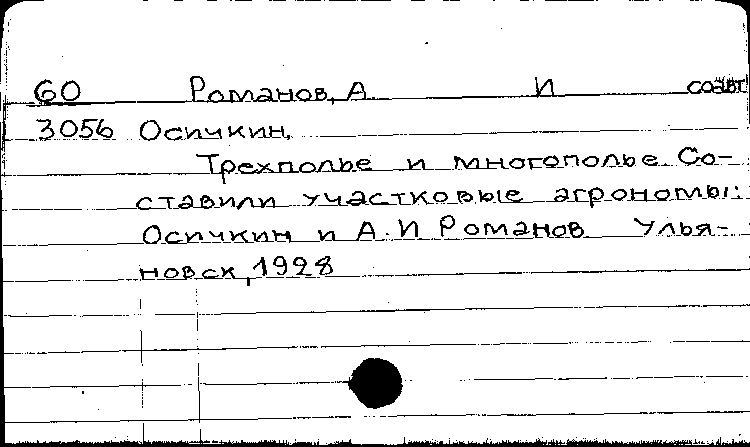 60 Романов, А. И соавт
3056 Осичкин.
Трехполье и многополье. Со-
ставили участковые агрономы:
Осичкин и А. И Романов Улья-
новск, 1928